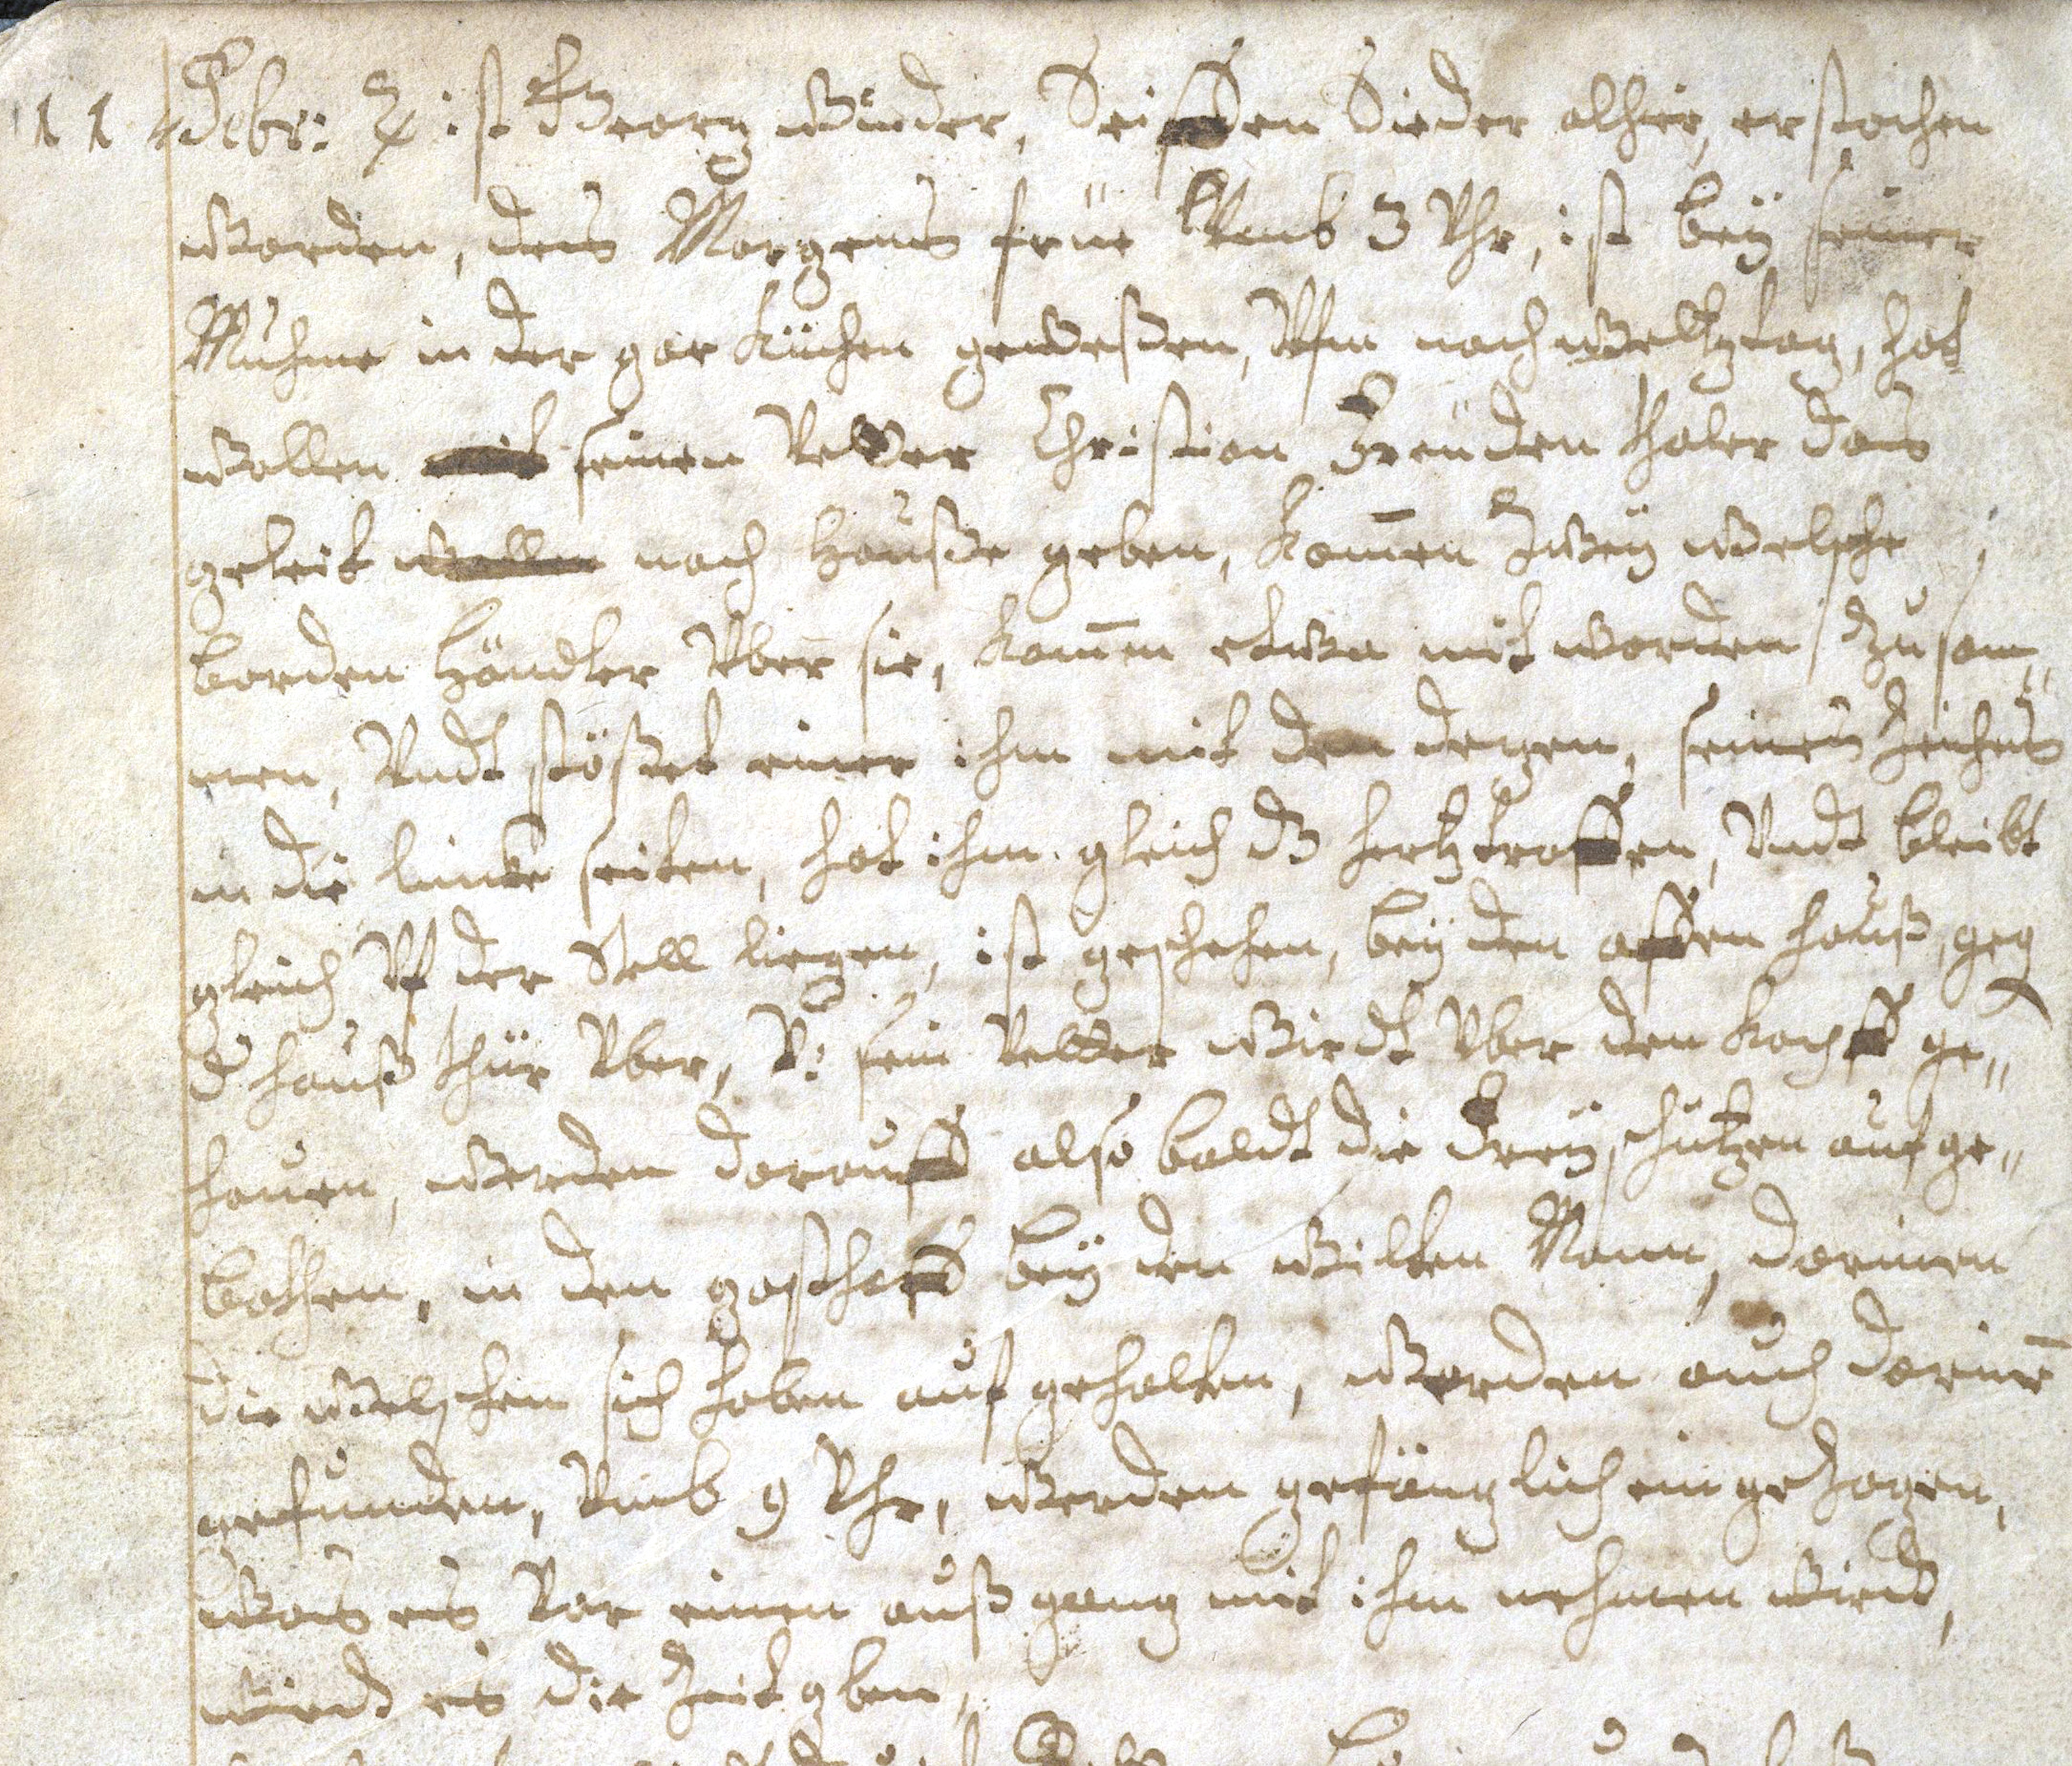 11 Febr: ♃ ist Georg Winder, Seiffen Sieder alhier, erstochen
worden, deß Morgens früe Vmb 3 Vhr, ist bey seiner
Muhme in der gar Küchen geweßen, Vfm naschmarcktag, hat
wollen mit seinen Vetter Christian Freüden thaler daß
geleit wollen nach Hauße geben, kom̄en Zwey welsche
borden Händler Vber sie, kom̄en etwa mit worden Zusam„
men, Vndt stößet einer ihm mit den degen, seines Zeichens
in die lincke seiten, hat ihm gleich dz hertz troffen, Vndt bleibt
gleich Vf der Stell liegen, ist geschehen, bey den affen hauß, geg
d hauß thür Vber, V: sein Vetter wirdt Vber den Kopff ge„
hauen, werden darauff also baldt die Drey schützen auf ge„
bothen, in den gasthoff bey den wilten Mann, darinen
die welschen sich haben auf gehalten, werden auch darin̄
gefunden, Vmb 9 Vhr, werden gefänglich ein geZogen,
waß eß Vor einen auß gang mit ihm nehmen wird,
wird eß die Zeit geben,